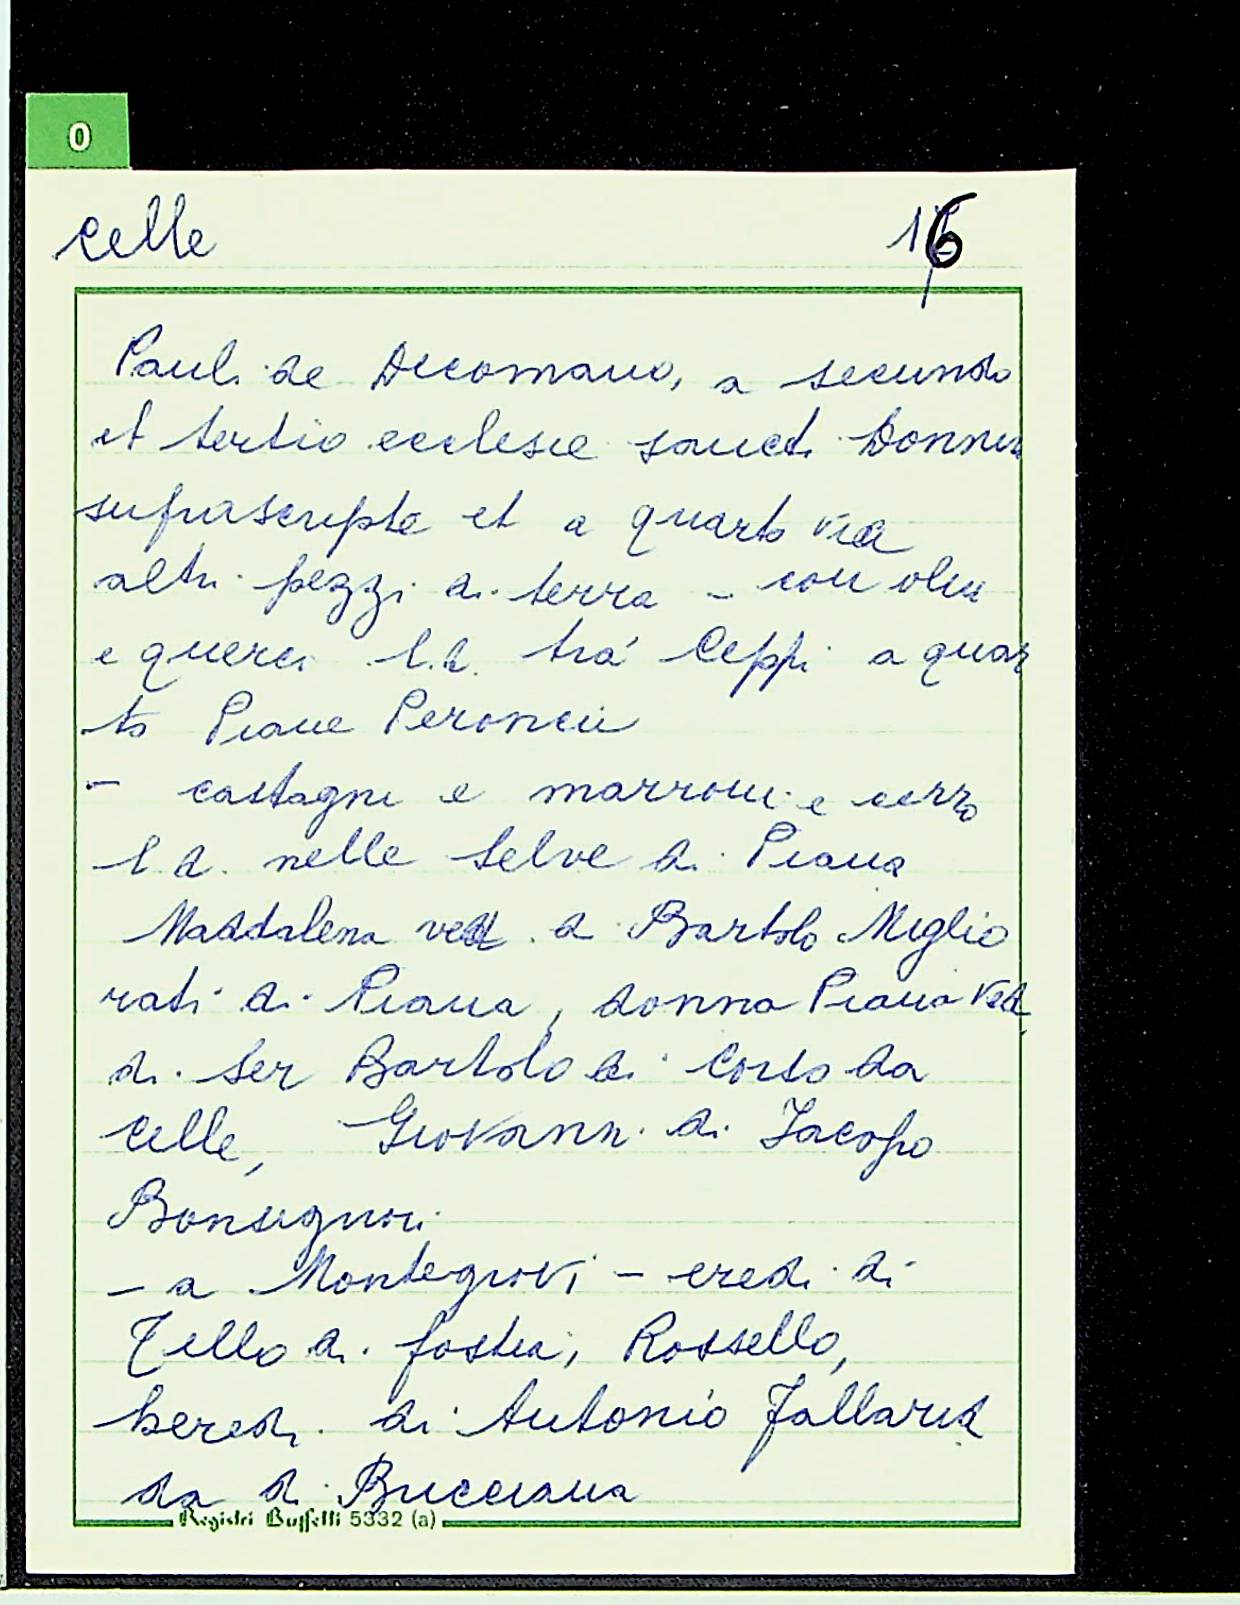 0
celle 16
Pauli de Decomano, a secundo
et tertio ecclesie sancti Donnin
suprascripte et a quarto via
altri pezzi di terra - con olivi
e querci l.d. trà Ceppi a quar
to Piane Peroncii
- castagni e marroni e cerro
l.d. nelle selve di Piana
Maddalena ved. d Bartolo Miglio
rati di Piana, donna Piana ved.
di ser Bartolo di Corso da
Celle, Giovanni di Jacopo
Bonsignori
- a Montegiovi - eredi di
Tello di, Rossello,
heredi di Antonio
da di Bucciana
Registri Buffetti 5332 (a)